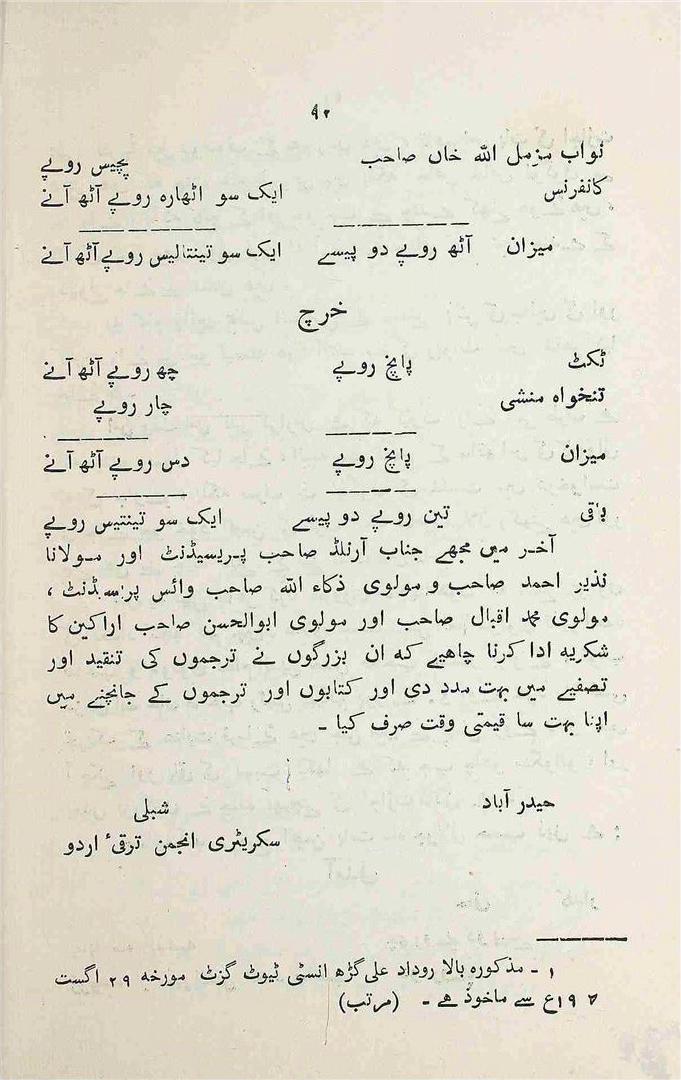 ۹۲
نواب مزمل اللہ خاں صاحب پچیس روپے
کانفرنس ایک سو اٹھارہ روپے آٹھ آنے
میزان آٹھ روپے دو پیسے ایک سو تینتالیس روپے آٹھ آنے
خرچ
ٹکٹ پانچ روپے چھ روپے آٹھ آنے
تنخواہ منشی چار روپے
میزان پانچ روپے دس روپے آٹھ آنے
باقی تین روپے دو پیسے ایک سو تینتیس روپے
آخر میں مجھے جناب آرنلڈ صاحب پریسیڈنٹ اور مولانا
نذیر احمد صاحب و مولوی ذکاء اللہ صاحب وائس پریسیڈنٹ ،
مولوی محمد اقبال صاحب اور مولوی ابوالحسن صاحب اراکین کا
شکریہ ادا کرنا چاہیے کہ ان بزرگوں نے ترجموں کی تنقید اور
تصفیے میں بہت مدد دی اور کتابوں اور ترجموں کے جانچنے میں
اپنا بہت سا قیمتی وقت صرف کیا ۔
حیدر آباد شبلی
سکریٹری انجمن ترقیٔ اردو
۱ ۔ مذکورہ بالا روداد علی گڑھ انسٹی ٹیوٹ گزٹ مورخہ ۲۹ اگست
سے ماخوذ ہے ۔ (مرتب)